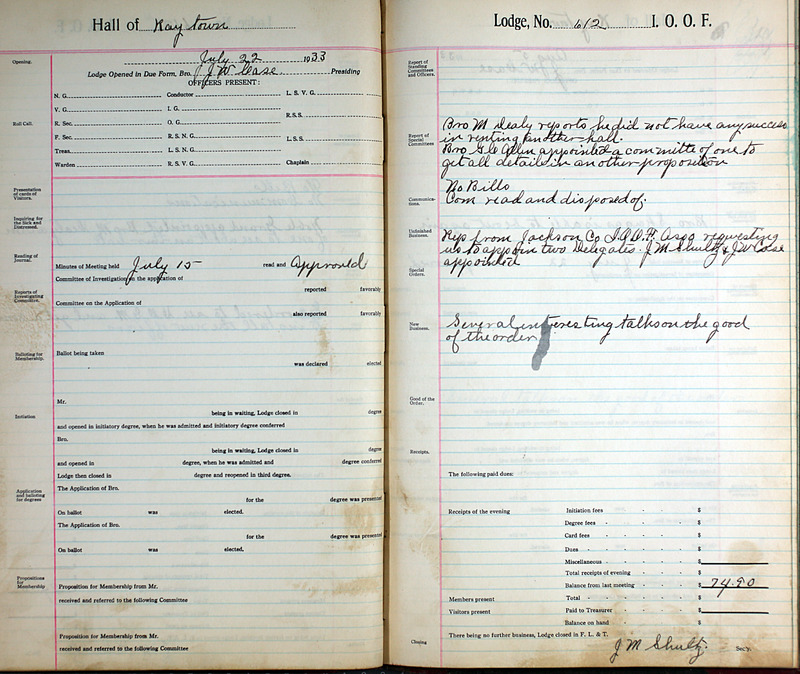 Hall of Raytown
Opening.
July 22 1933
Lodge Opened in Due Form, Bro. J W Case Presiding
OFFICERS PRESENT:
N. G. Conductor L. S. V. G.
V. G. I. G.
R. S. S.
Roll Call.
R. Sec. O. G.
F. Sec. R. S. N. G. L. S. S.
Treas. L. S. N. G.
Warden R. S. V. G. Chaplain
Presentation of cards of Visitors.
Inquiring for the Sick and Distressed.
Reading of Journal.
Minutes of Meeting held July 15 read and Approved
Committee of Investigation on the application of
reported favorably
Reports of Investigating Committee.
Committee on the Application of
also reported favorably
Balloting for Membership.
Ballot being taken
was declared elected
Mr.
Initiation
being in waiting, Lodge closed in degree
and opened in initiatory degree, when he was admitted and initiatory degree conferred
Bro.
being in waiting, Lodge closed in degree
and opened in degree, when he was admitted and degree conferred
Lodge then closed in degree and reopened in third degree.
Application and balloting for degrees
The Application of Bro.
for the degree was presented
On ballot was elected.
The Application of Bro.
for the degree was presented
On ballot was elected.
Propositions for Membership
Proposition for Membership from Mr.
received and referred to the following Committee
Proposition for Membership from Mr.
received and referred to the following Committee
Lodge, No. 612 I. O. O. F.
Report of Standing Committees and Officers.
Report of Special Committees
Bro M Dealy reports he did not have any success
in renting another hall.
Bro Allen appointed a committe of one to
get all detail in another proposition
No Bills
Communications.
Com read and disposed of.
Unfinished Business.
from Jackson Co I.O.O.F. Asso requesting
us to appoin two Delegates. J M Shultz & J W Case
appointed
Special Orders.
New Business.
Several interesting talks on the good
of the order
Good of the Order.
Receipts.
The following paid dues:
Receipts of the evening Initiation fees $
Degree fees $
Card fees $
Dues $
Miscellaneous $
Total receipts of evening $
Balance from last meeting $ 74.90
Members present Total $
Visitors present Paid to Treasurer $
Balance on hand $
Closing
There being no further business, Lodge closed in F. L. & T.
J M Shultz. Sec'y.